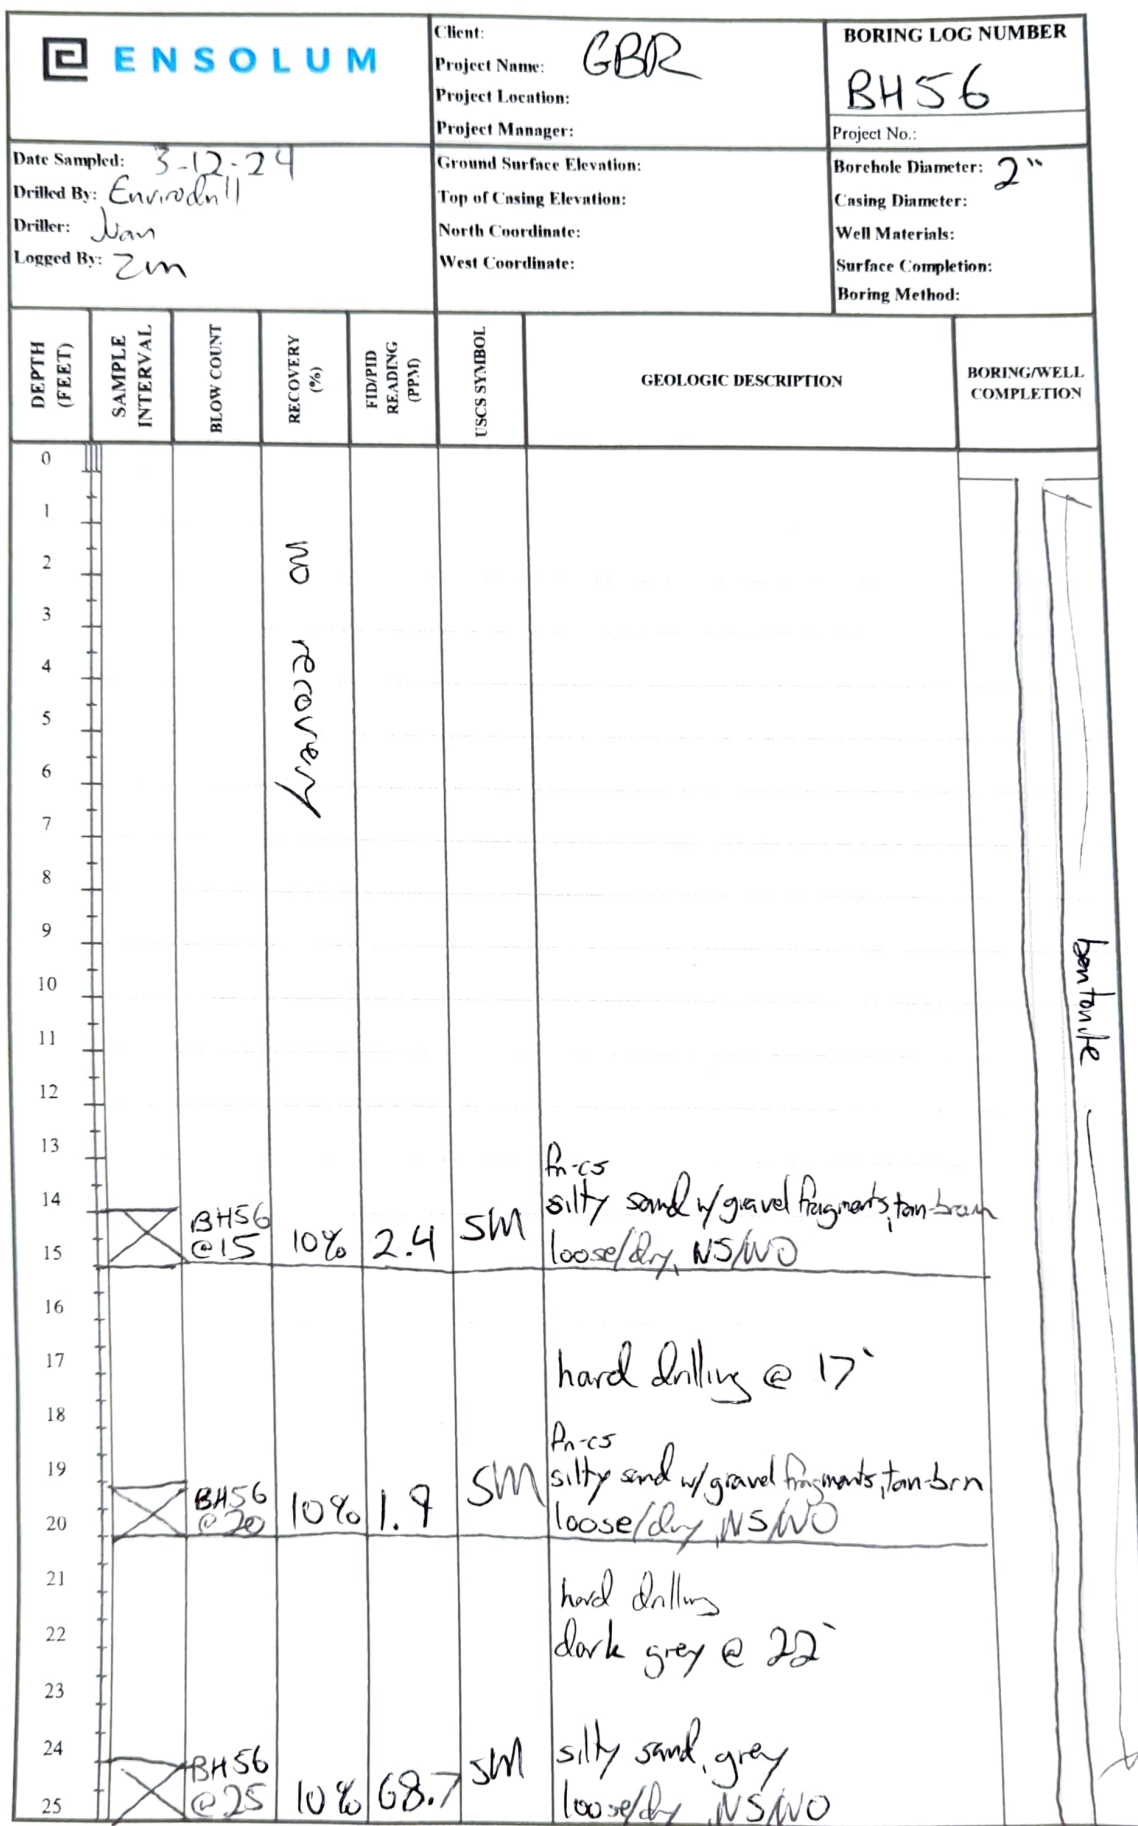 ENSOLUM
Client: GBR
Project Name:
Project Location:
Project Manager:
BORING LOG NUMBER
BH56
Project No.:
Date Sampled: 3-12-24
Drilled By: Envirodrill
Driller: Juan
Logged By: Zm
Ground Surface Elevation:
Top of Casing Elevation:
North Coordinate:
West Coordinate:
Borehole Diameter: 2"
Casing Diameter:
Well Materials:
Surface Completion:
Boring Method:
DEPTH (FEET)
SAMPLE INTERVAL
BLOW COUNT
RECOVERY (%)
FID/PID READING (PPM)
USCS SYMBOL
GEOLOGIC DESCRIPTION
BORING/WELL COMPLETION
0
1
2
3
4
5
6
7
no recovery
8
9
10
11
12
bentonite
13
fn-cs
14 BH56 SM silty sand w/ gravel fragments, tan-brown
15 @15 10% 2.4 loose/dry, NS/NO
16
17 hard drilling @ 17'
18
fn-cs
19 BH56 SM silty sand w/ gravel fragments, tan-brn
20 @20 10% 1.9 loose/dry, NS/NO
21 hard drilling
22 dark grey @ 22'
23
24 BH56 SM silty sand, grey
25 @25 10% 68.7 loose/dry, NS/NO